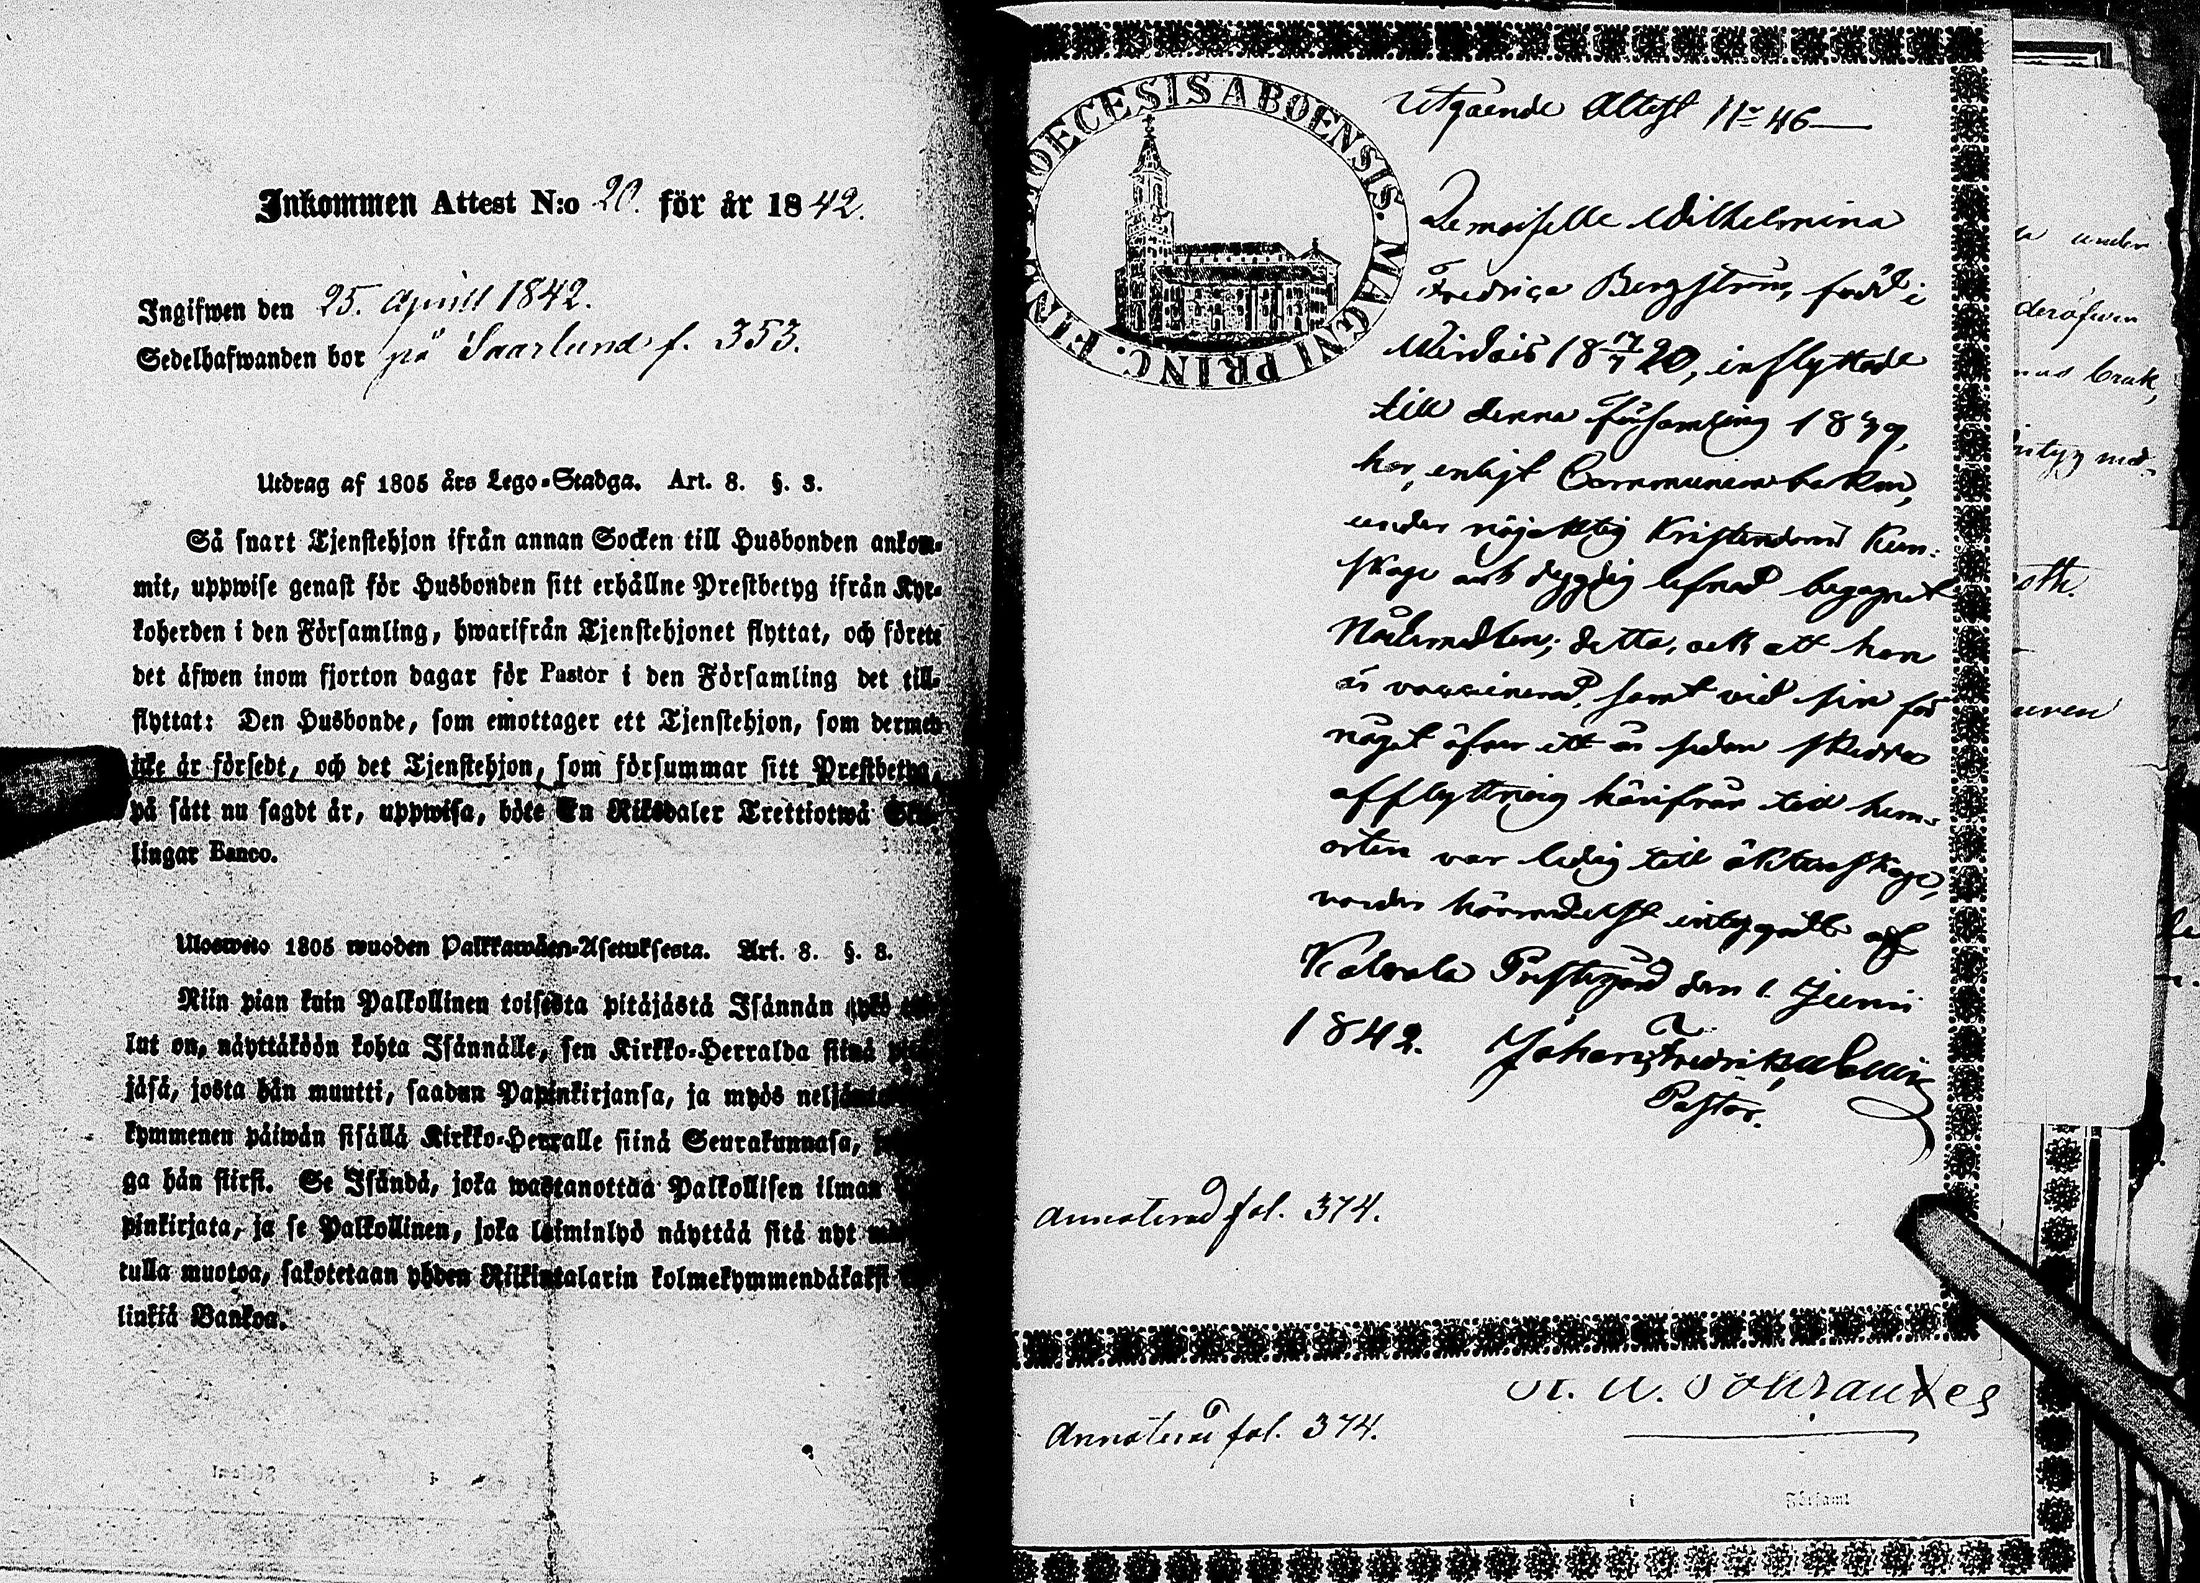 Inkommen Attest N:o 20. för år 1842.
Ingifwen den 25. April 1842.
Sedelhafwanden bor på Saarlund f. 353.
Utdrag af 1805 års Lego-Stadga. Art. 8. §. 3.
Så snart Tjenstehjon ifrån annan Socken till Husbonden ankom-
mit, uppwise genast för Husbonden sitt erhållne Prestbetyg ifrån Kyr-
koherden i den Församling, hwarifrån Tjenstehjonet flyttat, och förete
det äfwen inom fjorton dagar för Pastor i den Församling det till-
flyttat: Den Husbonde, som emottager ett Tjenstehjon, som dermed
icke är försedt, och det Tjenstehjon, som försummar sitt Prestbetyg,
på sätt nu sagdt är, uppwisa, böte En Riksdaler Trettiotwå
lingar Banco.
Ulosweto 1805 wuoden Palkkawäen-Asetuksesta. Art. 8. §. 3.
Niin pian kuin Palkollinen toisesta pitäjästä Isännän tykö
lut on, näyttäköön kohta Isännälle, sen Kirkko-Herralda siinä
jäsä, josta hän muutti, saadun Papinkirjansa, ja myös
kymmenen päiwän sisällä Kirkko-Herralle siinä Seurakunnasa,
ga hän siirsi. Se Isändä, joka wastanottaa Palkollisen ilman
pinkirjata, ja se Palkollinen, joka laiminlyö näyttää sitä nyt
tulla muotoa, sakotetaan yhden Riikintalarin kolmekymmendäkaksi
linkiä Bankoa.
DIOECESIS ABOENSIS. MAGNI PRINC. FINL.
Utgående Attest No 46
Demoiselle Wilhelmina
Fredrica Bergström, född i
Urdais 18 17/7 20, inflyttade
till denna församling 1839,
har, enligt Communionboken,
under nöjaktig Kristendoms Kun-
skap och dygdig lefnad begagnat
Nådemedlen; detta, och att hon
är vaccinerad, samt vid sin för
något öfver ett år sedan skedda
afflyttning härifrån till hem-
orten var ledig till äktenskap,
varder härmedelst intygadt af
Kalvola Prestgård den 1. Junii
1842. Johan Fredrik
Pastor.
Annoterad fol. 374.
Annoterad fol. 374.
i Församl